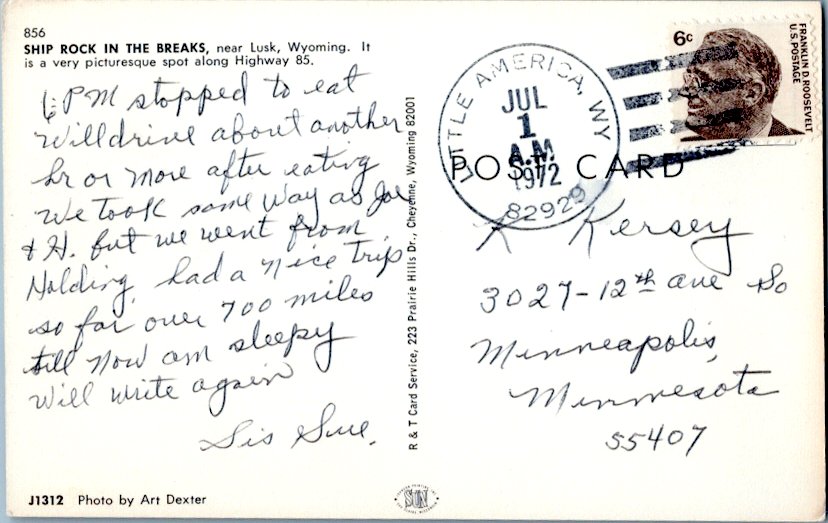 856
SHIP ROCK IN THE BREAKS, near Lusk, Wyoming. It
is a very picturesque spot along Highway 85.
6 PM stopped to eat
Will drive about another
hr or more after eating
We took same way as Joe
& H. but we went from
Holding, had a nice trip
so far over 700 miles
till now am sleepy
Will write again
Sis Sue.
J1312 Photo by Art Dexter
R & T Card Service, 223 Prairie Hills Dr., Cheyenne, Wyoming 82001
SUN
LITTLE AMERICA, WY
JUL
1
A.M
1972
82929
6c
FRANKLIN D. ROOSEVELT
U.S. POSTAGE
POST CARD
K Kersey
3027-12th ave So
Minneapolis,
Minnesota
55407